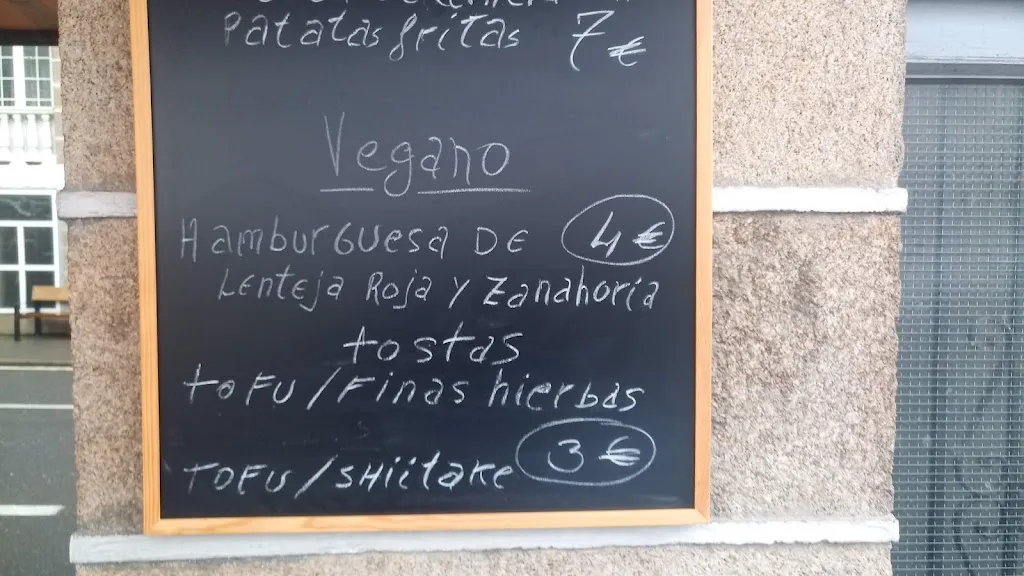 Patatas fritas 7 €
Vegano
Hamburguesa DE 4 €
Lenteja Roja y Zanahoria
tostas
toFu / Finas hierbas
TOFU / SHiitake 3 €